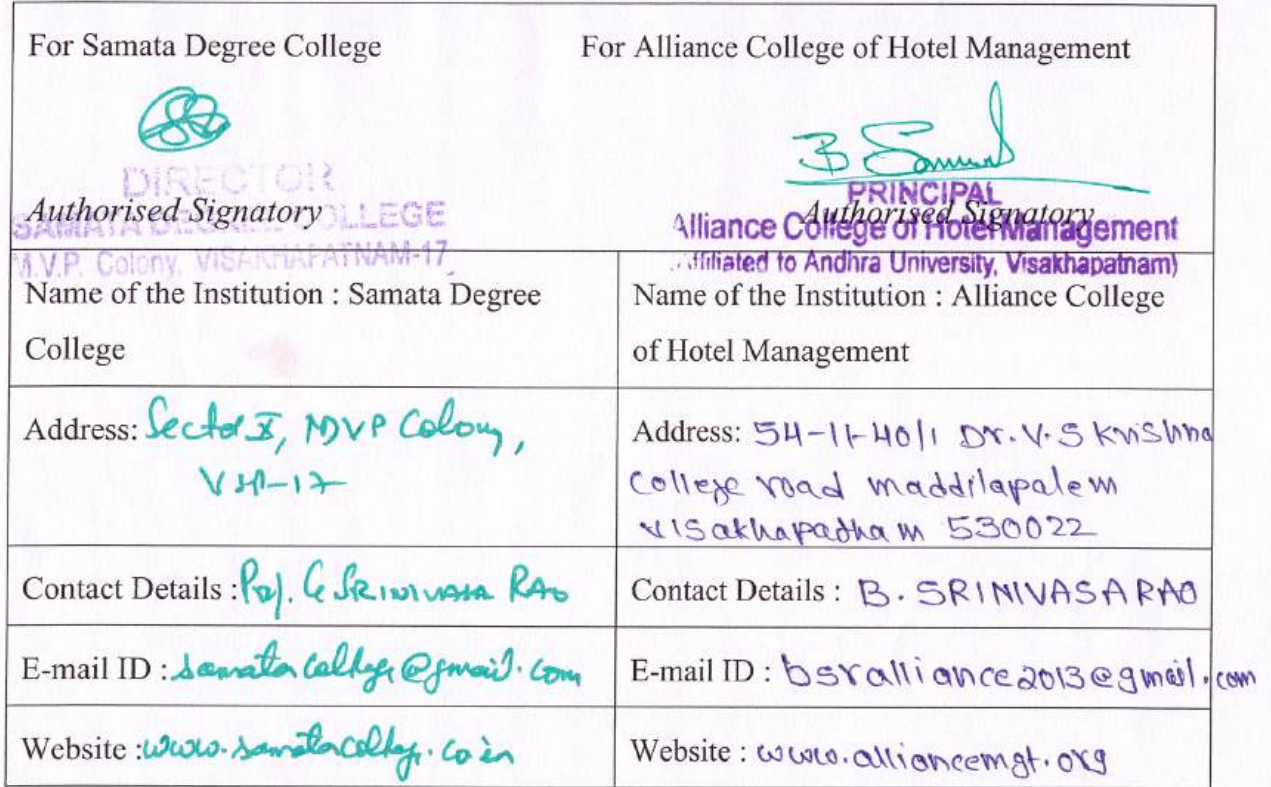 For Samata Degree College
For Alliance College of Hotel Management
B
DIRECTOR
Authorised Signatory
SAMATA DEGREE COLLEGE
M.V.P. Colony, VISAKHAPATNAM-17
PRINCIPAL
Authorised Signatory
Alliance College of Hotel Management
Affiliated to Andhra University, Visakhapatnam)
Name of the Institution : Samata Degree
College
Name of the Institution : Alliance College
of Hotel Management
Address: Sector X, MVP Colony,
VSP-17
Address: 54-11-40/1 Dr. V.S Krishna
college road maddilapalem
visakhapatnam 530022
Contact Details : Prof. G SRINIVASA RAO
Contact Details : B. SRINIVASA RAO
E-mail ID : samatacollege@gmail.com
E-mail ID : bsralliance2013@gmail.com
Website : www.samatacollege.co.in
Website : www.alliancemgt.org